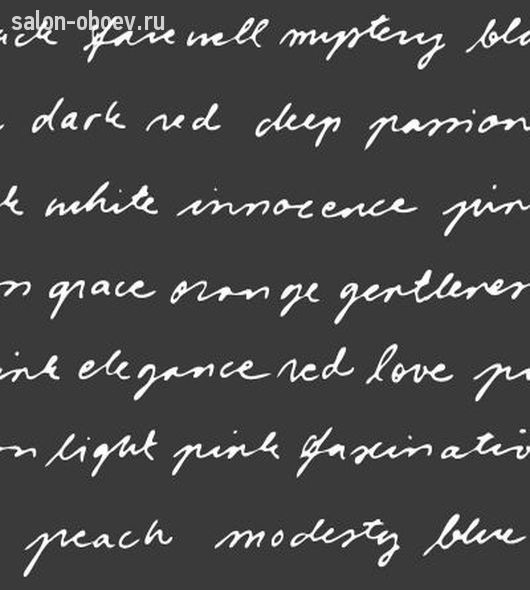 salon-oboev.ru
ack farewell mystery bla
dark red deep passion
k white innocence pin
on grace orange gentlenes
ink elegance red love pu
on light pink fascinatio
peach modesty blue